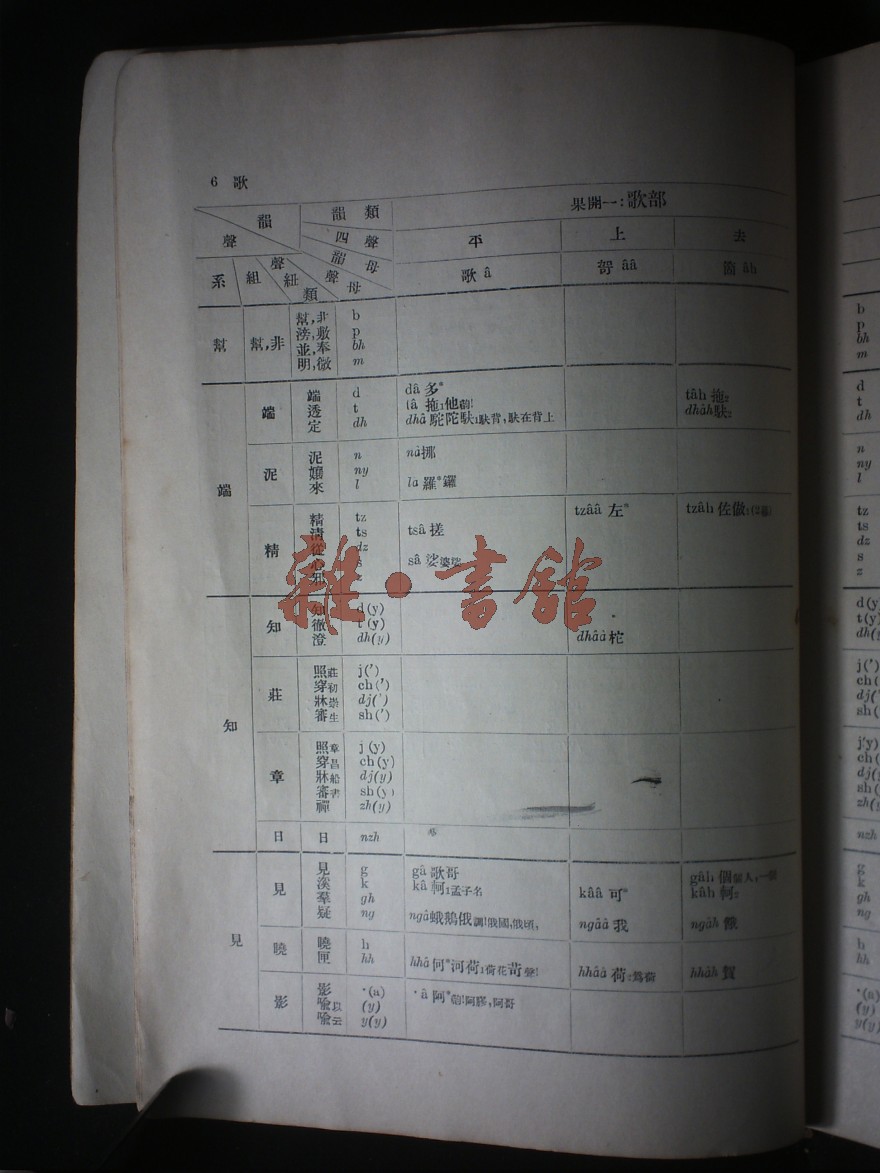 6 歌
果開一:歌部
韻 韻類
聲 四聲 平 上 去
韻母
系 組 聲紐類 聲母 歌 â 哿 ââ 箇 âh
幫 幫,非 幫,非 b
滂,敷 p
並,奉 bh
明,微 m
端 端 端 d dâ 多*
透 t tâ 拖₁他 tâh 拖₂
定 dh dhâ 駝陀馱₁馱背,馱在背上 dhâh 馱₂
泥 泥 n nâ 挪
孃 ny
來 l la 羅*鑼
精 精 tz tzââ 左* tzâh 佐做
清 ts tsâ 搓
從 dz
心 s sâ 娑婆娑
邪 z
知 知 知 d(y)
徹 t(y)
澄 dh(y) dhââ 柁
莊 照莊 j(')
穿初 ch(')
牀崇 dj(')
審生 sh(')
章 照章 j(y)
穿昌 ch(y)
牀船 dj(y)
審書 sh(y)
禪 zh(y)
日 日 nzh
見 見 見 g gâ 歌哥 gâh 個個人,一個
溪 k kâ 軻₁孟子名 kââ 可* kâh 軻₂
羣 gh
疑 ng ngâ 蛾鵝俄調!俄國,俄頃, ngââ 我 ngâh 餓
曉 曉 h
匣 hh hhâ 何*河荷₁荷花苛聲! hhââ 荷₂ hhâh 賀
影 影 ·(a) ·â 阿*韻!阿膠,阿哥
喩以 (y)
喩云 y(y)
b
p
bh
m
d
t
dh
n
ny
l
tz
ts
dz
s
z
d(y)
t(y)
dh(y)
j(')
ch(
dj(
sh(
j(y)
ch(
dj(
sh(
zh(
nzh
g
k
gh
ng
h
hh
·(a)
(y)
y(y)
雜·書館